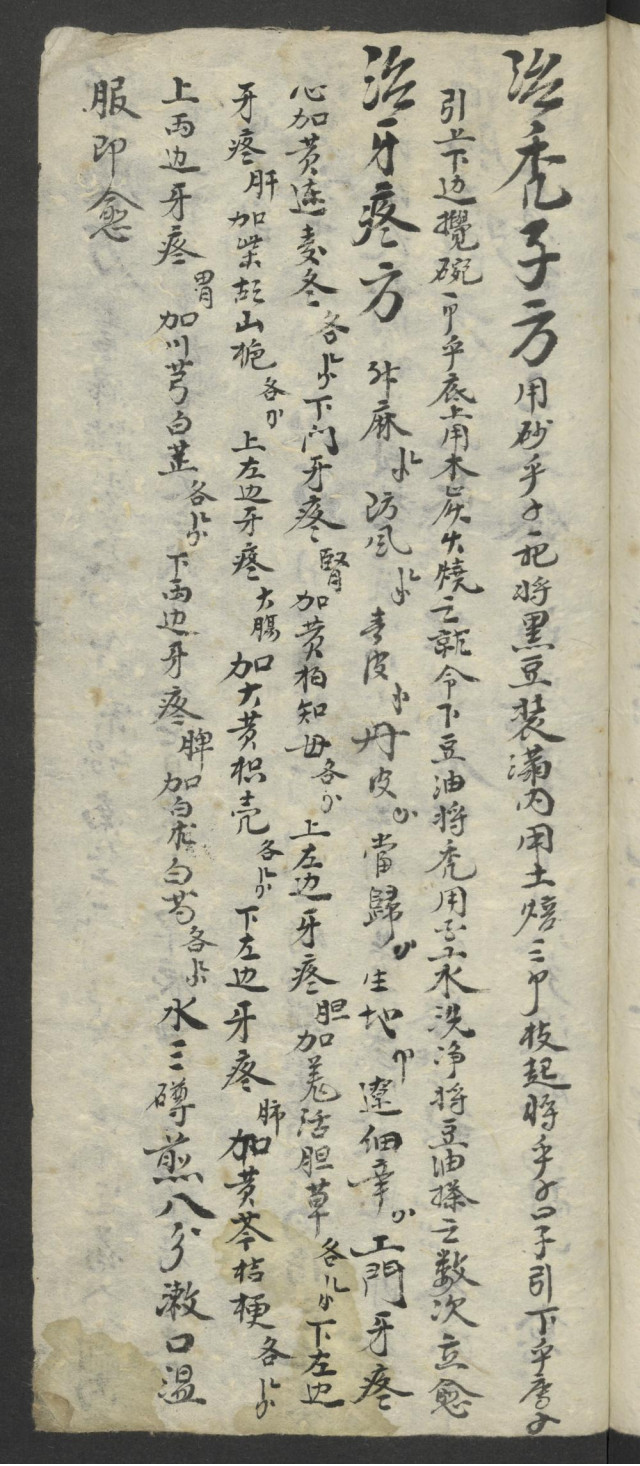 治秃子方用砂乎子一祀将黑豆装满内用土焙三卩枝起将乎子口子引下乎
引上下边搅碗一卩乎底上用木炭火燒之就令下豆油将秃用水洗净将豆油搽之数次立愈
治牙疼方 升麻 防风 青皮 丹皮 當歸 生地 遼细辛 上門牙疼
心加黄连麦冬各 下门牙疼腎加黄柏知母各 上左边牙疼胆加羗活胆草各 下左边
牙疼肝加柴胡山栀各 上左边牙疼大腸加大黄枳壳各 下左边牙疼肺加黄芩桔梗各
上两边牙疼胃加川芎白芷各 下两边牙疼脾加白朮白芍各 水三磚煎八分漱口温
服即愈